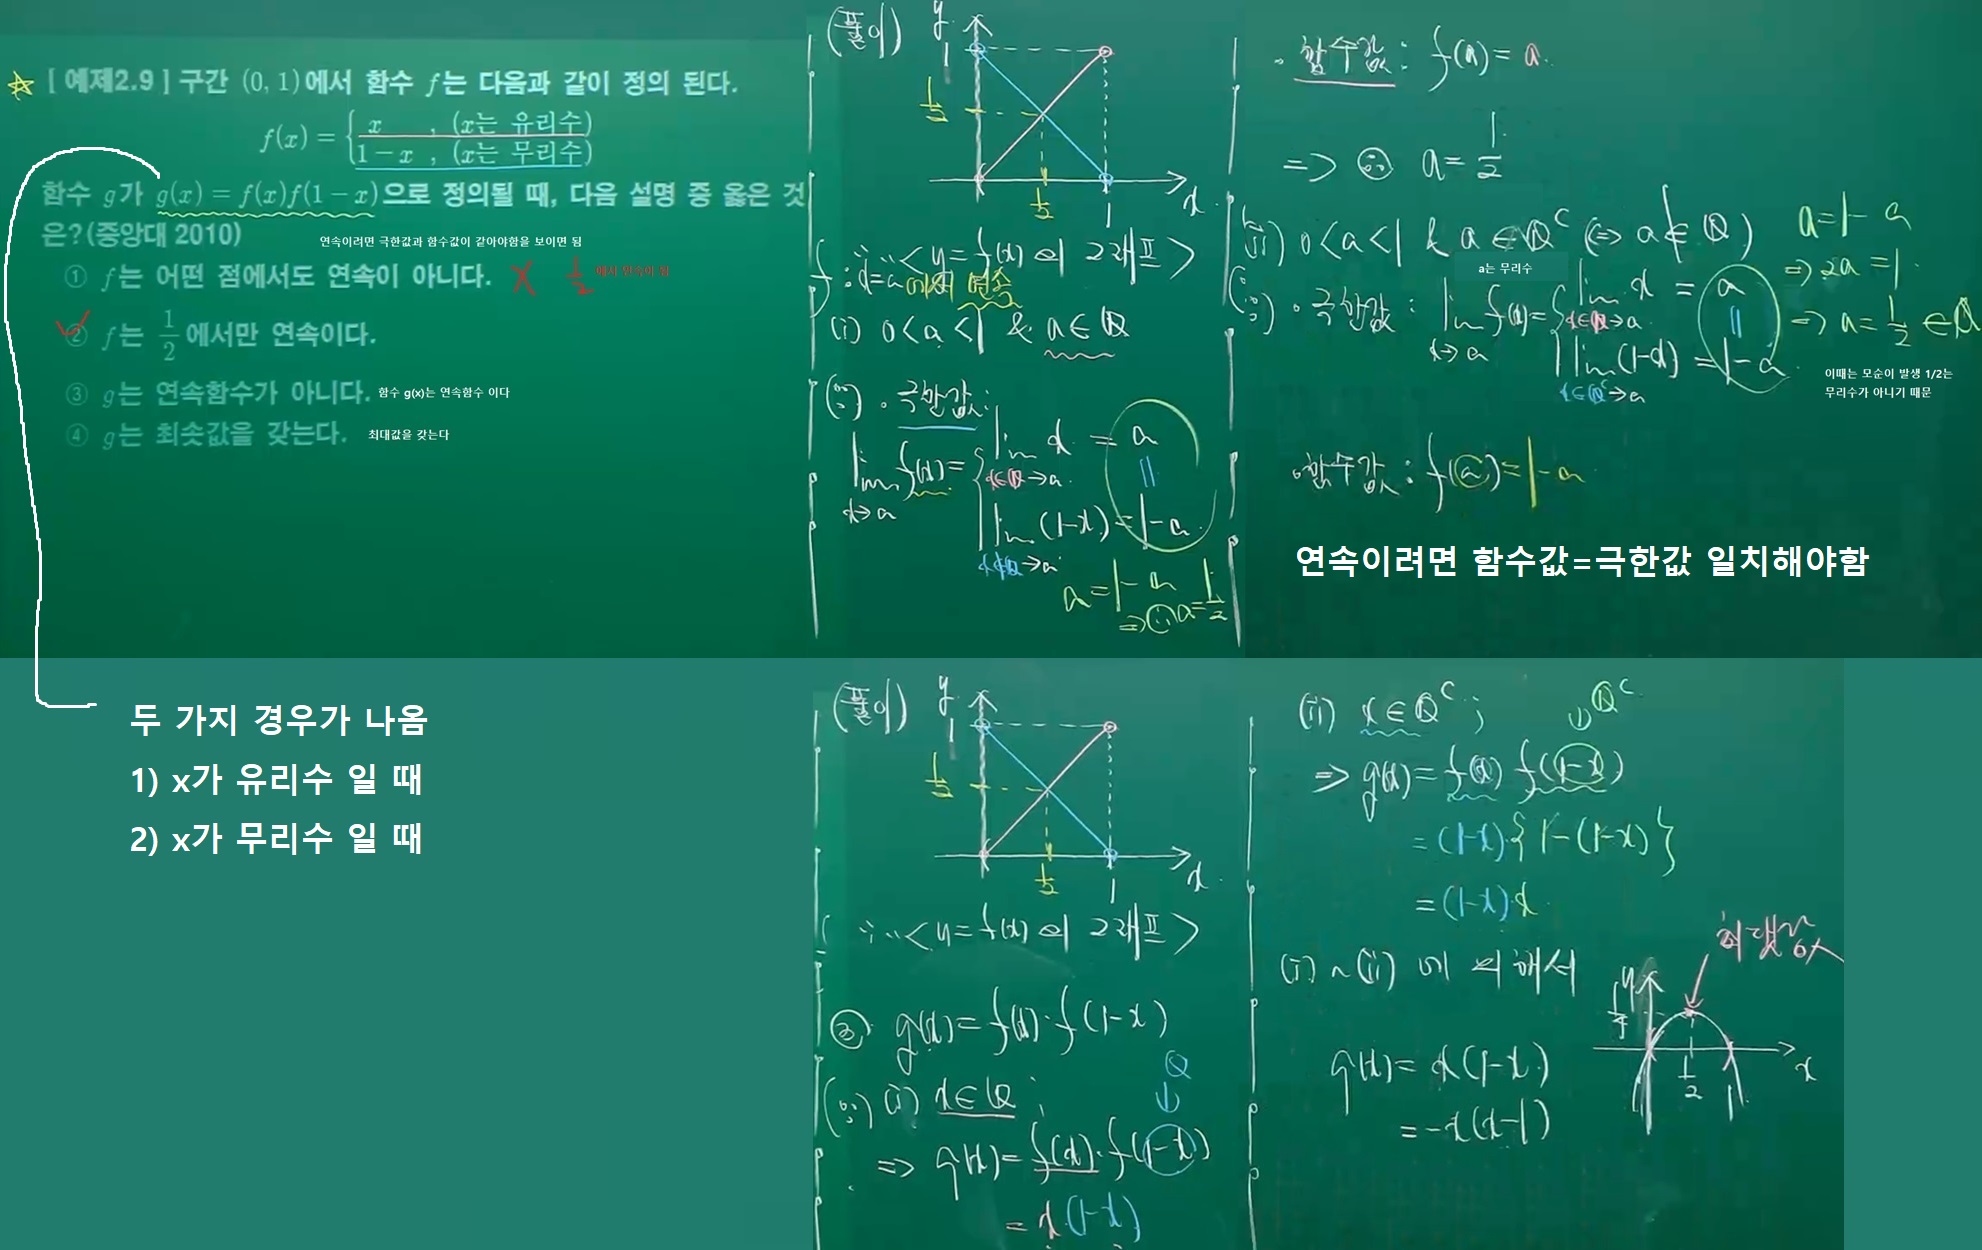 [ 예제2.9 ] 구간 (0, 1)에서 함수 f는 다음과 같이 정의 된다.
f(x) = { x , (x는 유리수)
1-x , (x는 무리수)
함수 g가 g(x) = f(x)f(1-x)으로 정의될 때, 다음 설명 중 옳은 것
은?(중앙대 2010)
연속이려면 극한값과 함수값이 같아야함을 보이면 됨
① f는 어떤 점에서도 연속이 아니다. X 1/2 에서 연속이 됨
② f는 1/2에서만 연속이다.
③ g는 연속함수가 아니다. 함수 g(x)는 연속함수 이다
④ g는 최솟값을 갖는다. 최대값을 갖는다
두 가지 경우가 나옴
1) x가 유리수 일 때
2) x가 무리수 일 때
(풀이) y
1
1/2
1/2 1 x
<y=f(x)의 그래프>
f : x=a에서 연속
(i) 0<a<1 & a∈Q
(∵) · 극한값 :
lim f(x) = { lim x = a
x→a x∈Q→a
lim (1-x) = 1-a
x∉Q→a
a=1-a
=> ∴ a=1/2
· 함수값 : f(a) = a.
=> ∴ a = 1/2
(ii) 0<a<1 & a∈Q^c (<=> a∉Q)
a는 무리수
(∵) · 극한값 : lim f(x) = { lim x = a
x→a x∈Q→a
lim (1-x) = 1-a
x∈Q^c→a
a=1-a
=> 2a=1
=> a=1/2 ∈Q
이때는 모순이 발생 1/2는
무리수가 아니기 때문
· 함수값 : f(a) = 1-a
연속이려면 함수값=극한값 일치해야함
(풀이) y
1
1/2
1/2 1 x
<y=f(x)의 그래프>
③ g(x) = f(x)·f(1-x)
Q
(∵) (i) x∈Q ;
=> g(x) = f(x)·f(1-x)
= x(1-x)
(ii) x∈Q^c ; Q^c
=> g(x) = f(x) f(1-x)
= (1-x)·{1-(1-x)}
= (1-x)·x
(i) ~ (ii) 에 의해서
g(x) = x(1-x)
= -x(x-1)
y
1/4
1/2 1 x